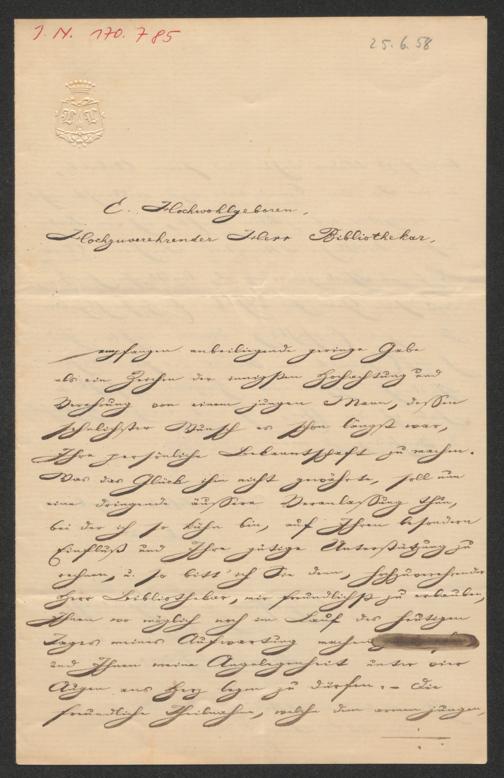 I. N. 170.785
25.6.58
E. Hochwohlgeboren,
Hochzuverehrender Herr Bibliothekar,
empfangen anbeiliegende geringe Gabe
als ein Zeichen der innigsten Hochachtung und
Verehrung von einem jungen Mann, dessen
sehnlichster Wunsch es schon längst war,
Ihre persönliche Bekanntschaft zu machen.
Was das Glück ihm nicht gewährte, soll nun
eine dringende äussere Veranlassung thun,
bei der ich so kühn bin, auf Ihren besondern
Einfluß und Ihre gütige Unterstützung zu
rechnen, u. so bitt' ich Sie denn, hochzuverehrender
Herr Bibliothekar, mir freundlichst zu erlauben,
Ihnen wo möglich noch im Lauf des heutigen
Tages meine Aufwartung machen
und Ihnen meine Angelegenheit unter vier
Augen ans Herz legen zu dürfen. – Die
freundliche Theilnahme, welche dem armen jungen,